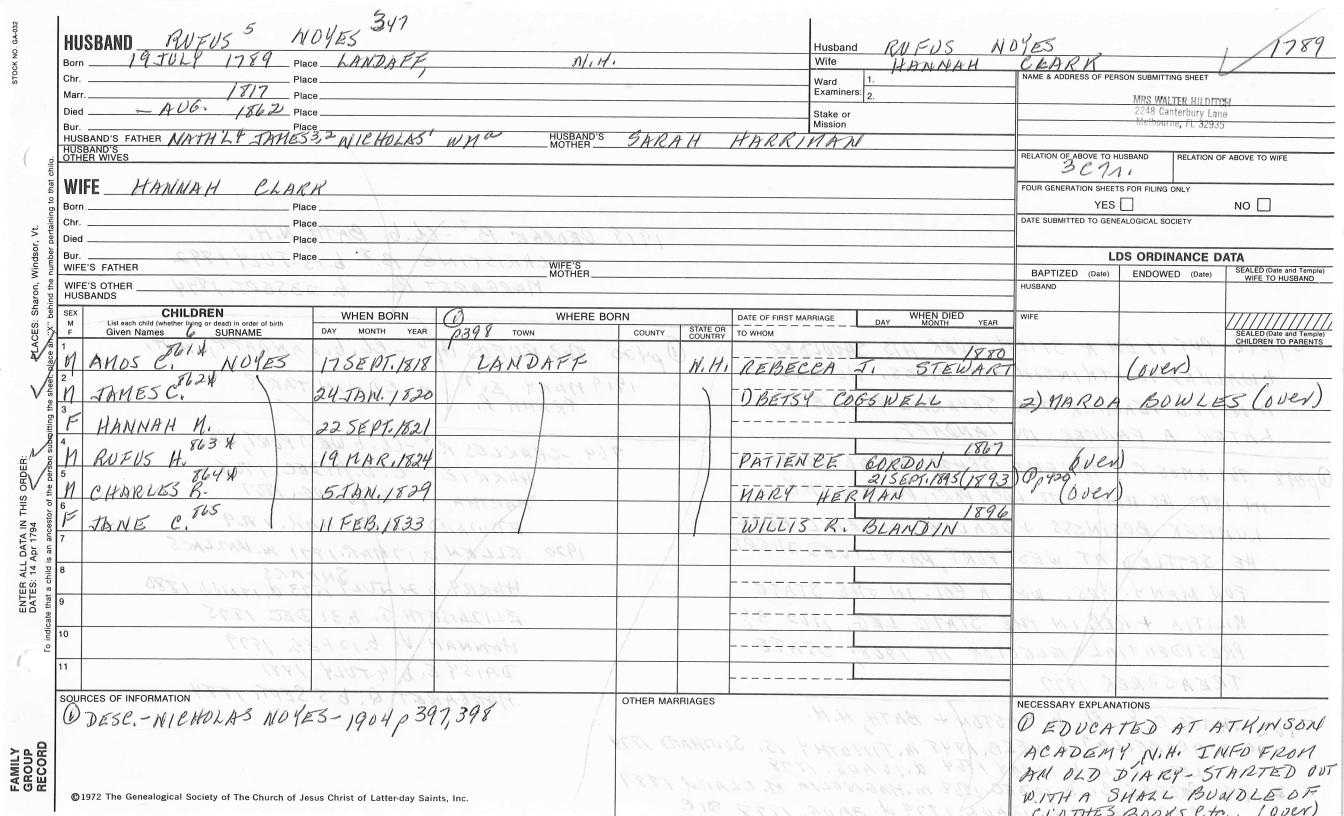 STOCK NO. GA-032
HUSBAND RUFUS 5 NOYES 347
Born 19 JULY 1789 Place LANDAFF, N.H.
Chr. Place
Marr. 1817 Place
Died — AUG. 1862 Place
Bur. Place
HUSBAND'S FATHER NATH'L4 JAMES3,2 NICHOLAS1 WMa HUSBAND'S MOTHER SARAH HARRIMAN
HUSBAND'S OTHER WIVES
Husband RUFUS NOYES 1789
Wife HANNAH CLARK
Ward Examiners: 1.
2.
Stake or Mission
NAME & ADDRESS OF PERSON SUBMITTING SHEET
MRS WALTER HILDITCH
2248 Canterbury Lane
Melbourne, FL 32935
RELATION OF ABOVE TO HUSBAND RELATION OF ABOVE TO WIFE
FOUR GENERATION SHEETS FOR FILING ONLY
YES NO
DATE SUBMITTED TO GENEALOGICAL SOCIETY
WIFE HANNAH CLARK
Born Place
Chr. Place
Died Place
Bur. Place
WIFE'S FATHER WIFE'S MOTHER
WIFE'S OTHER HUSBANDS
LDS ORDINANCE DATA
BAPTIZED (Date) ENDOWED (Date) SEALED (Date and Temple) WIFE TO HUSBAND
HUSBAND
WIFE
SEALED (Date and Temple) CHILDREN TO PARENTS
SEX M F CHILDREN WHEN BORN ① p398 WHERE BORN DATE OF FIRST MARRIAGE WHEN DIED
List each child (whether living or dead) in order of birth
Given Names 6 SURNAME DAY MONTH YEAR TOWN COUNTY STATE OR COUNTRY TO WHOM DAY MONTH YEAR
1 M AMOS C. 861 NOYES 17 SEPT. 1818 LANDAFF N.H. REBECCA J. STEWART 1880 (over)
2 M JAMES C. 862 24 JAN. 1820 1) BETSY COGSWELL 2) MARDA BOWLES (over)
3 F HANNAH M. 22 SEPT. 1821
4 M RUFUS H. 863 19 MAR. 1824 PATIENCE GORDON 1867 (over)
5 M CHARLES R. 864 5 JAN. 1829 MARY HERMAN 21 SEPT. 1895 (1893) ① p420 (over)
6 F JANE C. 865 11 FEB. 1833 WILLIS R. BLANDIN 1896
7
8
9
10
11
SOURCES OF INFORMATION
① DESC.-NICHOLAS NOYES-1904 p 397,398
OTHER MARRIAGES
NECESSARY EXPLANATIONS
① EDUCATED AT ATKINSON
ACADEMY, N.H. INFO FROM
AN OLD DIARY - STARTED OUT
WITH A SMALL BUNDLE OF
CLOTHES BOOKS etc. (over)
©1972 The Genealogical Society of The Church of Jesus Christ of Latter-day Saints, Inc.
FAMILY GROUP RECORD
ENTER ALL DATA IN THIS ORDER:
DATES: 14 Apr 1794
PLACES: Sharon, Windsor, Vt.
To indicate that a child is an ancestor of the person submitting the sheet, place an "X" behind the number pertaining to that child.